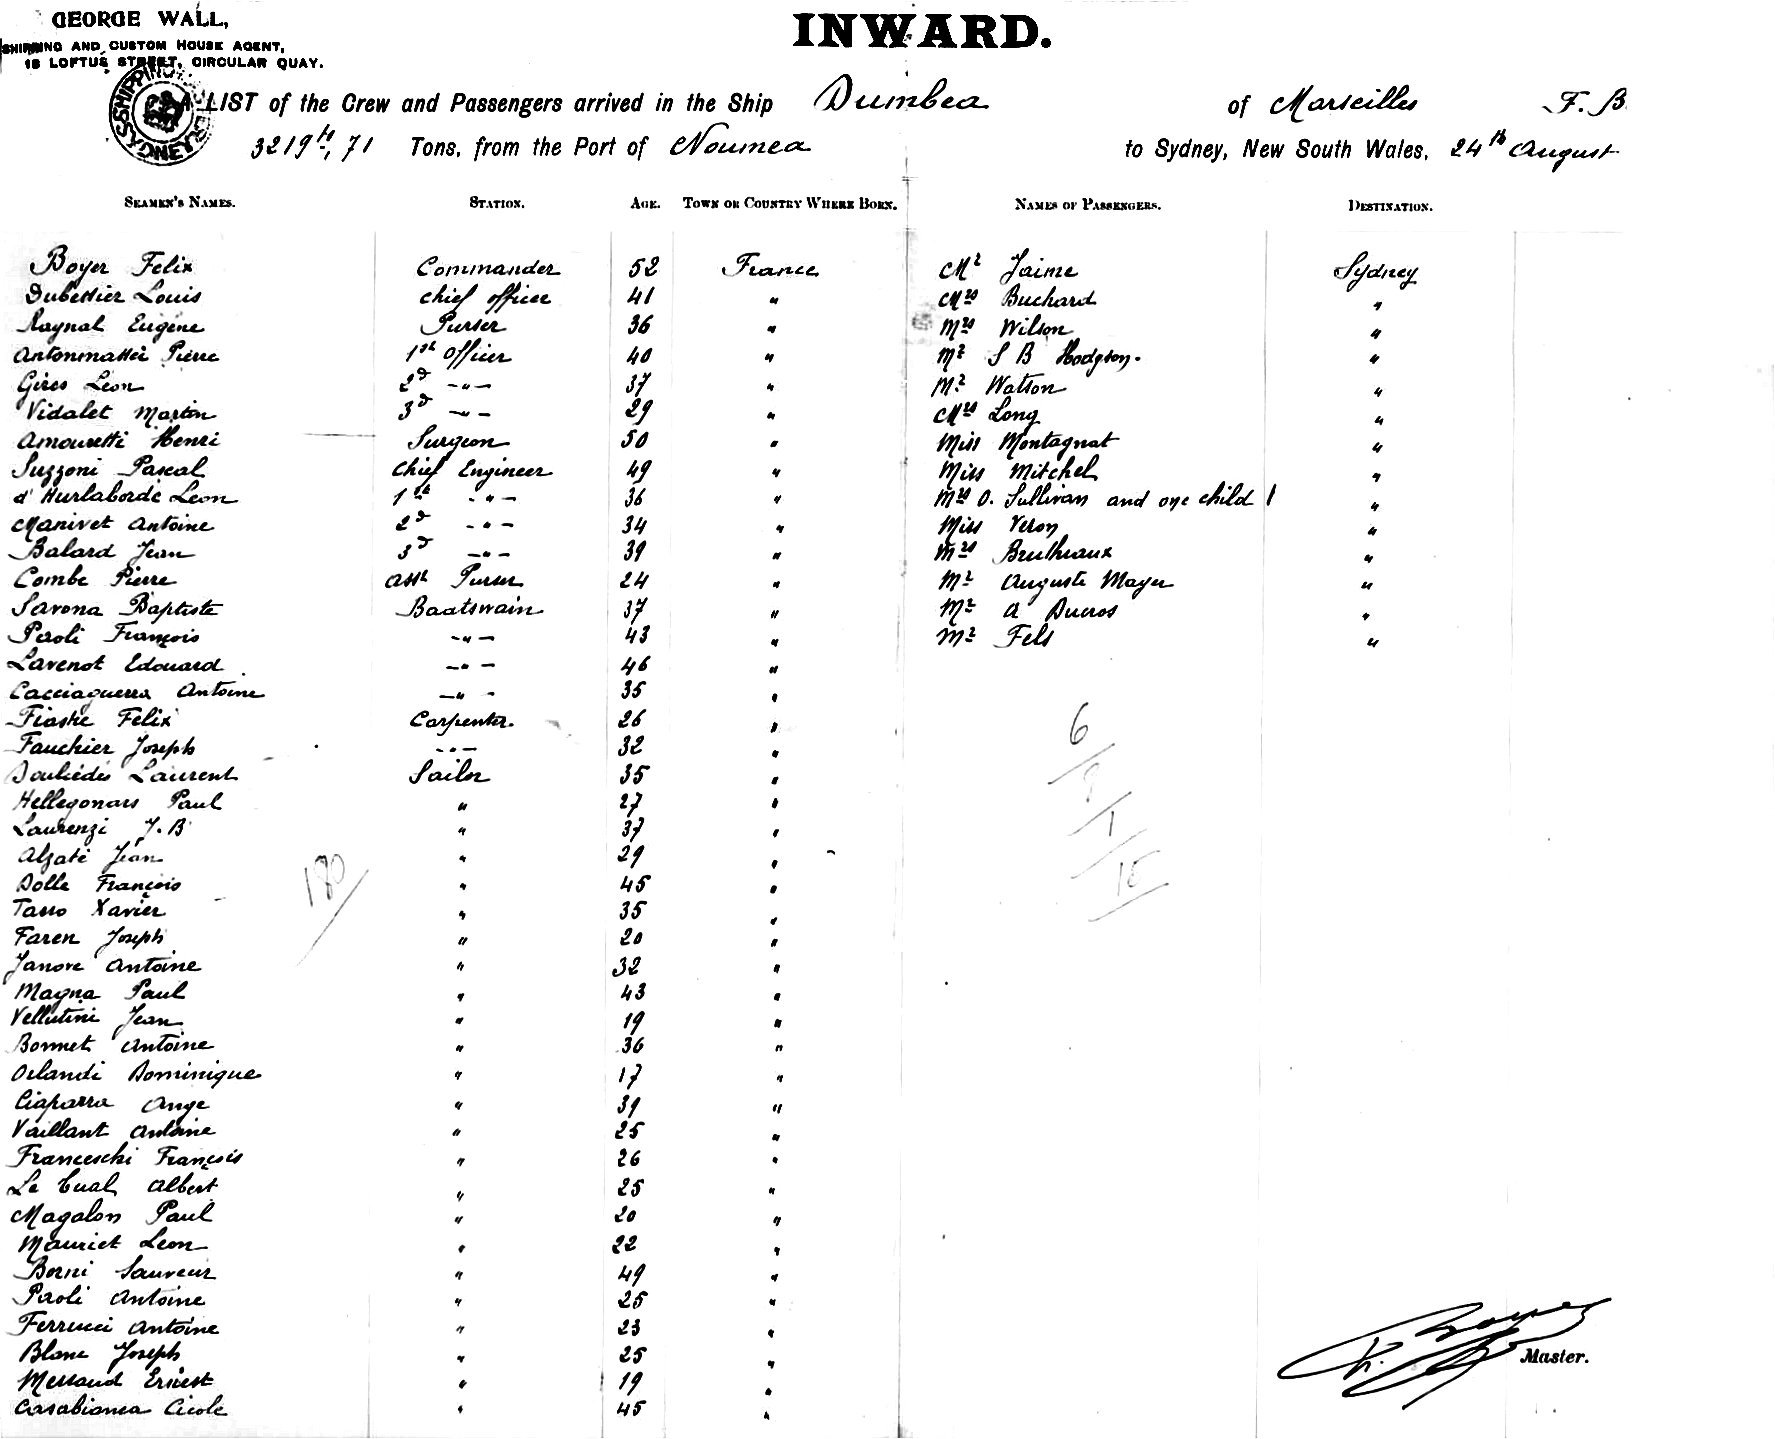 GEORGE WALL,
SHIPPING AND CUSTOM HOUSE AGENT,
18 LOFTUS STREET, CIRCULAR QUAY.
INWARD.
SHIPPING SYDNEY
A LIST of the Crew and Passengers arrived in the Ship Dumbea of Marseilles F. B
3219 tx, 71 Tons, from the Port of Noumea to Sydney, New South Wales, 24th August
SEAMEN'S NAMES. STATION. AGE. TOWN OR COUNTRY WHERE BORN. NAMES OF PASSENGERS. DESTINATION.
Boyer Felix Commander 52 France Mr Jaime Sydney
Dubessier Louis chief officer 41 " Mrs Buchard "
Raynal Eugène Purser 36 " Mrs Wilson "
Antonmattei Pierre 1st officer 40 " Mr S B Hodgson. "
Gires Léon 2d -"- 37 " Mr Watson "
Vidalet Martin 3d -"- 29 " Mrs Long "
Amouretti Henri Surgeon 50 " Miss Montagnat "
Suzzoni Pascal Chief Engineer 49 " Miss Mitchel "
d'Hurlaborde Leon 1st -"- 36 " Mrs O. Sullivan and one child 1 "
Manivet Antoine 2d -"- 34 " Miss Veron "
Balard Jean 3d -"- 39 " Mrs Brutheaux "
Combe Pierre asst Purser 24 " Mr Auguste Mayer "
Savona Baptiste Baatswain 37 " Mr A Ducros "
Paoli François -"- 43 " Mr Fels "
Lavenot Edouard -"- 46 "
Cacciaguerra Antoine -"- 35 "
Felix Carpenter. 26 "
Fauchier Joseph -"- 32 "
Laurent Sailor 35 "
Hellegonars Paul " 27 "
Laurenzi J. B " 37 "
Alzate Jean " 29 "
Dolle François " 45 "
Tasso Xavier " 35 "
Faren Joseph " 20 "
Janove Antoine " 32 "
Magna Paul " 43 "
Vellutini Jean " 19 "
Bonnet Antoine " 36 "
Orlandi Dominique " 17 "
Ciaparra Ange " 39 "
Vaillant Antoine " 25 "
Franceschi François " 26 "
Le Cual Albert " 25 "
Magalon Paul " 20 "
Mauriet Leon " 22 "
Borni Sauveur " 49 "
Paoli Antoine " 25 "
Ferrucci Antoine " 23 "
Blanc Joseph " 25 "
Messaud Ernest " 19 "
Casabianca Cicole " 45 "
6/9/1/15
180/
F. Boyer Master.